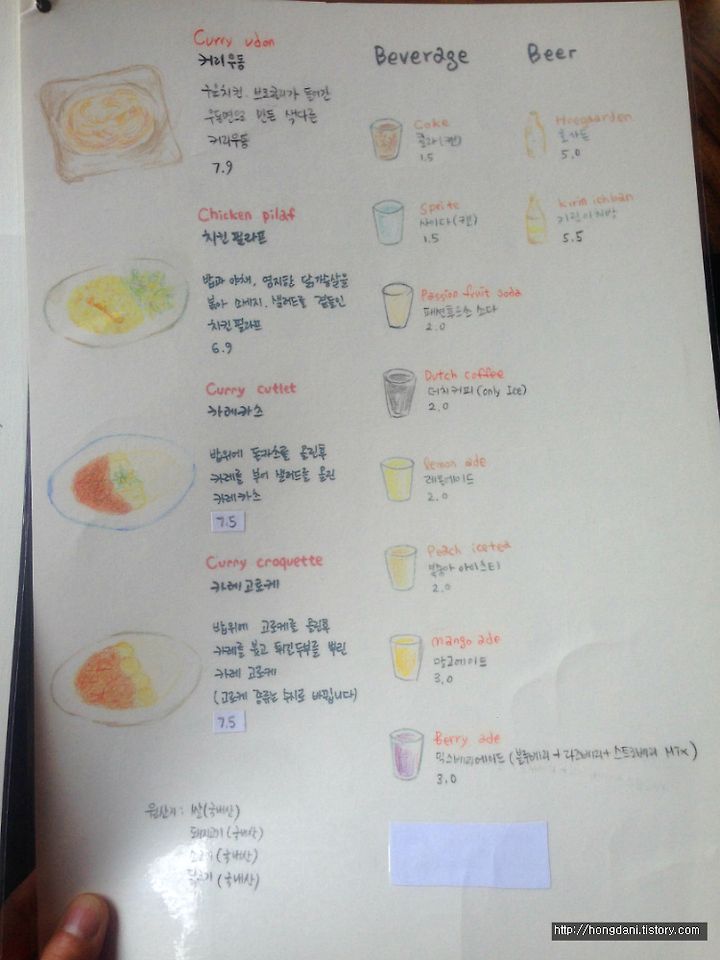 Curry udon
커리우동
구운치킨, 브로콜리가 들어간
우동면으로 만든 색다른
커리우동
7.9
Chicken pilaf
치킨필라프
밥과 야채, 닭가슴살을
볶아 소세지, 샐러드를 곁들인
치킨필라프
6.9
Curry cutlet
카레카츠
밥위에 돈까츠를 올린후
카레를 부어 샐러드를 올린
카레카츠
7.5
Curry croquette
카레고로케
밥위에 고로케를 올린후
카레를 붓고 튀긴두부를 뿌린
카레 고로케
(고로케 종류는 수시로 바뀝니다)
7.5
원산지: 쌀(국내산)
돼지고기(국내산)
소고기(국내산)
닭고기(국내산)
Beverage
Coke
콜라(캔)
1.5
Sprite
사이다(캔)
1.5
Passion fruit soda
패션후르츠 소다
2.0
Dutch coffee
더치커피(only Ice)
2.0
lemon ade
레몬에이드
2.0
Peach icetea
복숭아 아이스티
2.0
mango ade
망고에이드
3.0
Berry ade
믹스베리에이드(블루베리+라즈베리+스트로베리 MIX)
3.0
Beer
Hoegaarden
호가든
5.0
kirin ichiban
기린이치방
5.5
http://hongdani.tistory.com